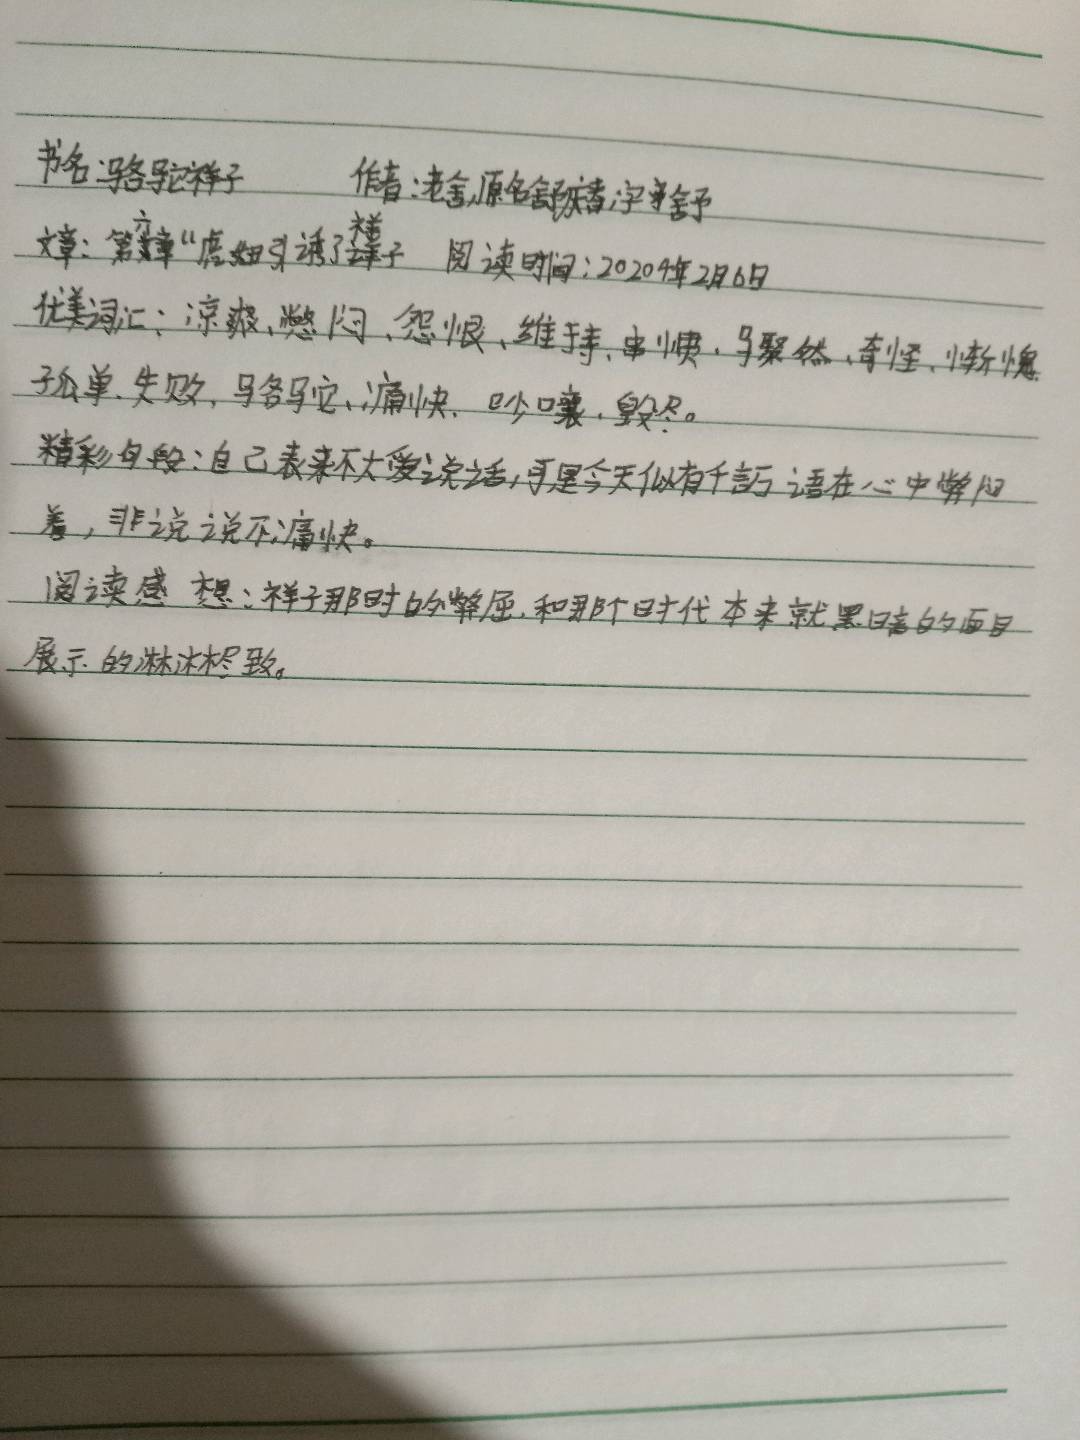 书名:骆驼祥子 作者:老舍,原名舒庆春,字舍予
文章:第六章“虎妞引诱了祥子 阅读时间:2020年2月6日
优美词汇:凉爽、憋闷、怨恨、维持、惧、骤然、奇怪、惭愧
孤单、失败、骆驼、痛快、吵嚷、毁尽。
精彩句段:自己表来不大爱说话,可是今天似有千言万语在心中憋闷
着,非说说不痛快。
阅读感想:祥子那时的憋屈,和那个时代本来就黑暗的面目
展示的淋沐尽致。